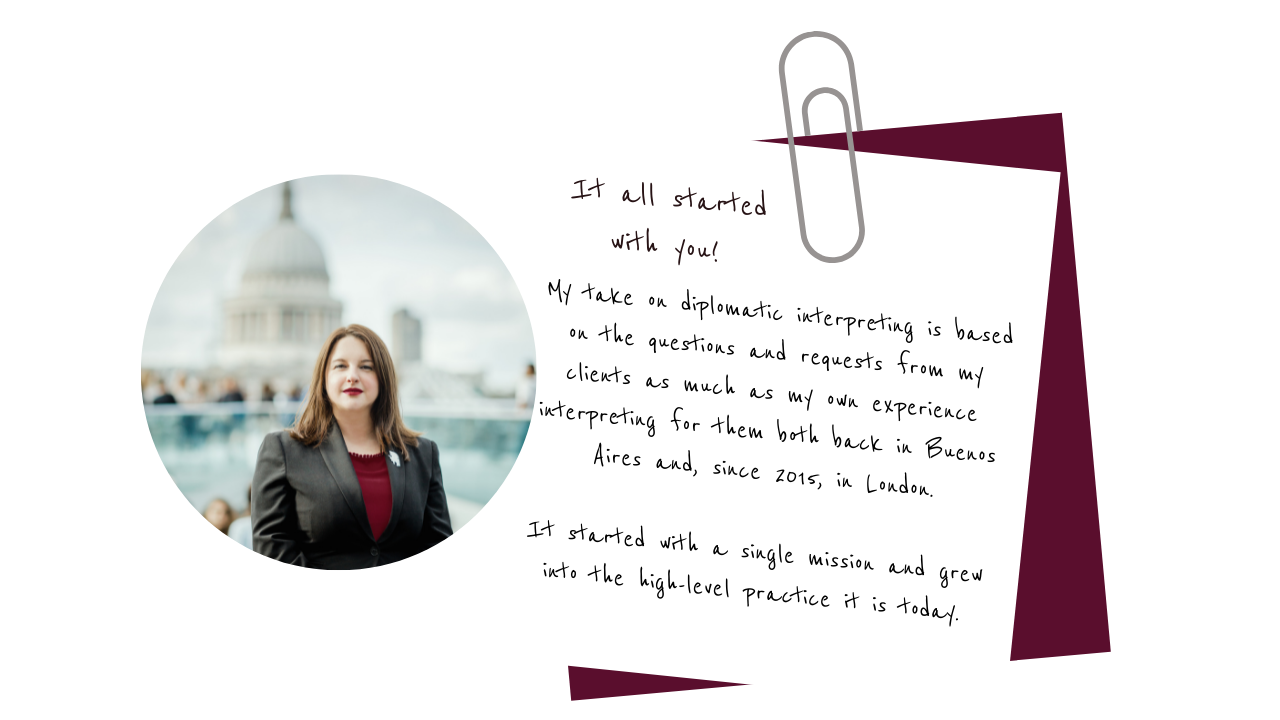 It all started
with you!
My take on diplomatic interpreting is based
on the questions and requests from my
clients as much as my own experience
interpreting for them both back in Buenos
Aires and, since 2015, in London.
It started with a single mission and grew
into the high-level practice it is today.